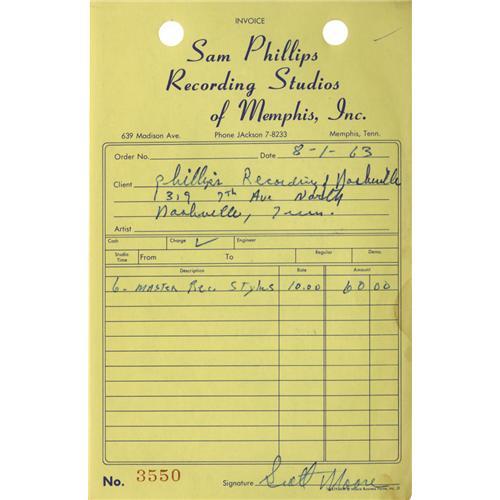 INVOICE
Sam Phillips
Recording Studios
of Memphis, Inc.
639 Madison Ave. Phone JAckson 7-8233 Memphis, Tenn.
Order No. Date 8-1-63
Client Phillips Recording Nashville
1319 7th Ave North
Nashville, Tenn.
Artist
Cash Charge ✓ Engineer
Studio Time From To Regular Demo.
Description Rate Amount
6- MASTER Rec Stylus 10.00 60 00
No. 3550 Signature Scott Moore